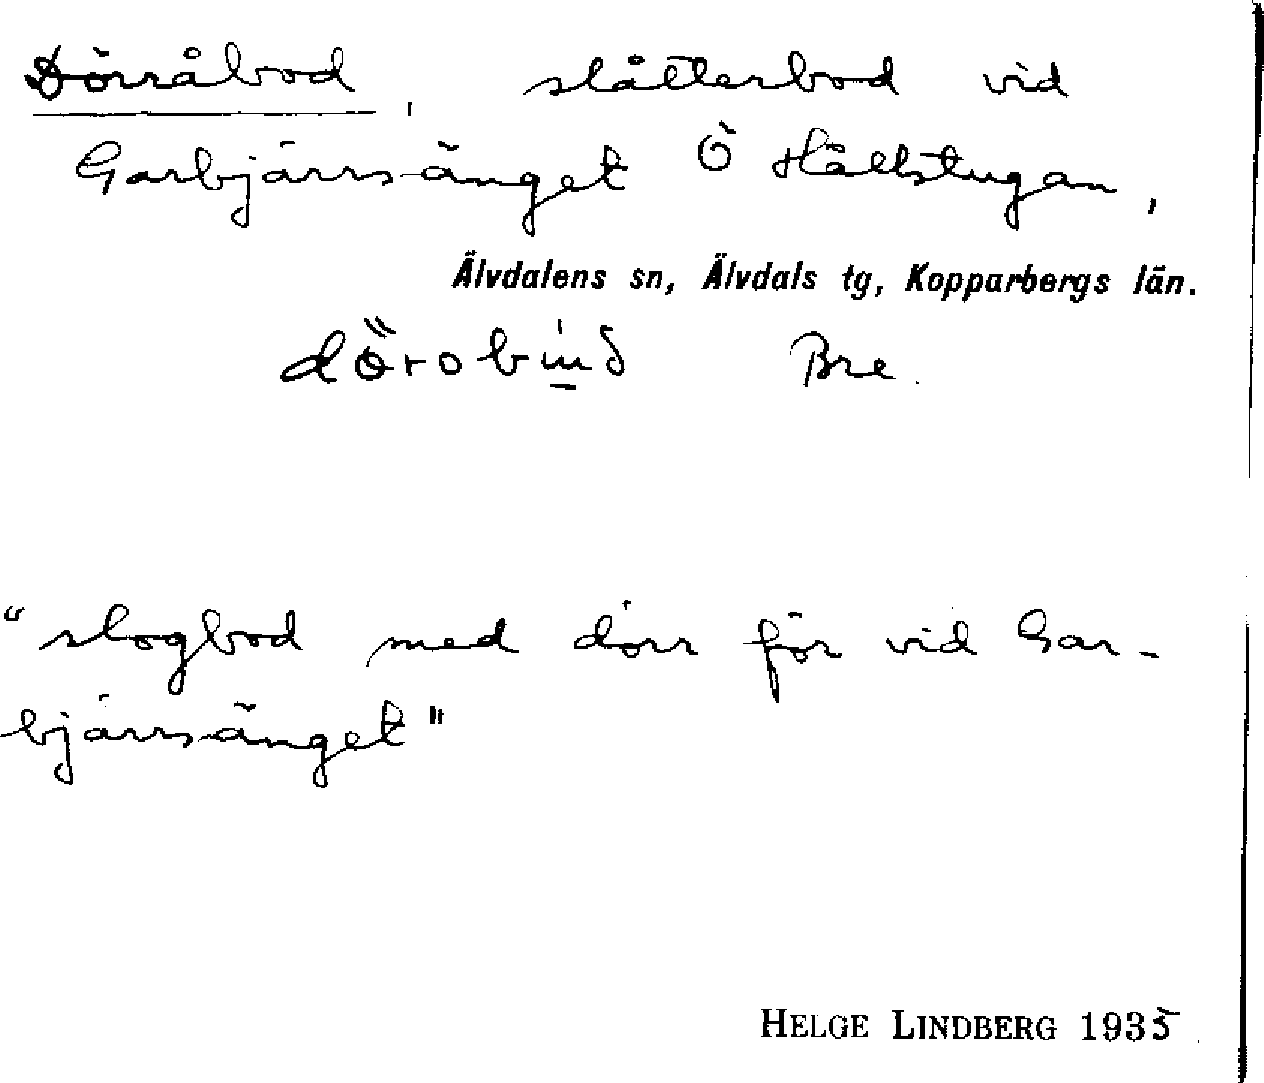 Dörråbod, slåtterbod vid
Garbjärrsänget Ö Hållstugan,
Älvdalens sn, Älvdals tg, Kopparbergs län.
Bre.
"slogbod med dörr för vid Gar-
bjärrsänget"
HELGE LINDBERG 1935